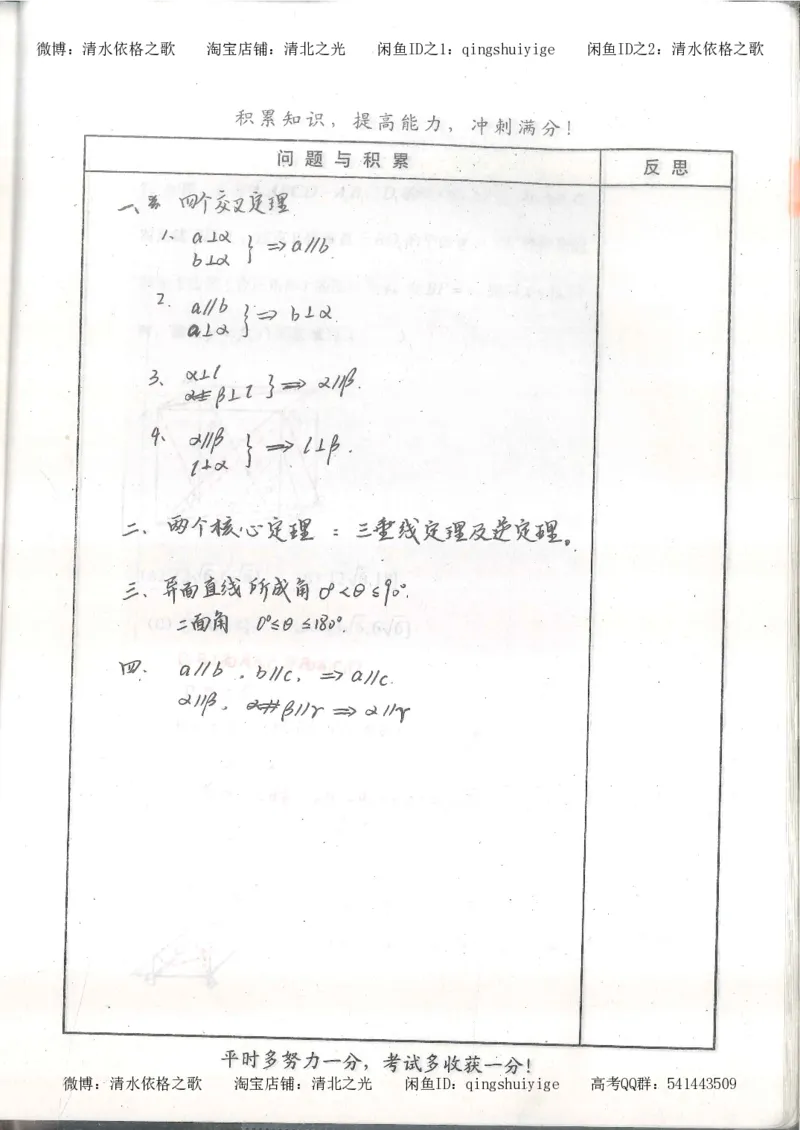 微博：清水依格之歌 淘宝店铺：清北之光 闲鱼ID之1：qingshuiyige 闲鱼ID之2：清水依格之歌
积累知识，提高能力，冲刺满分！
问题与积累 反思
一、四个交叉定理
1、a⊥α
b⊥α } ⇒a//b.
2. a//b
a⊥α } ⇒ b⊥α.
3、α⊥l
β⊥l } ⇒ α//β.
4、α//β
l⊥α } ⇒ l⊥β.
二、两个核心定理：三垂线定理及逆定理。
三、异面直线所成角 0°<θ≤90°.
二面角 0°≤θ≤180°.
四. a//b，b//c，⇒a//c.
α//β，β//γ ⇒ α//γ
平时多努力一分，考试多收获一分！
微博：清水依格之歌 淘宝店铺：清北之光 闲鱼ID：qingshuiyige 高考QQ群：541443509